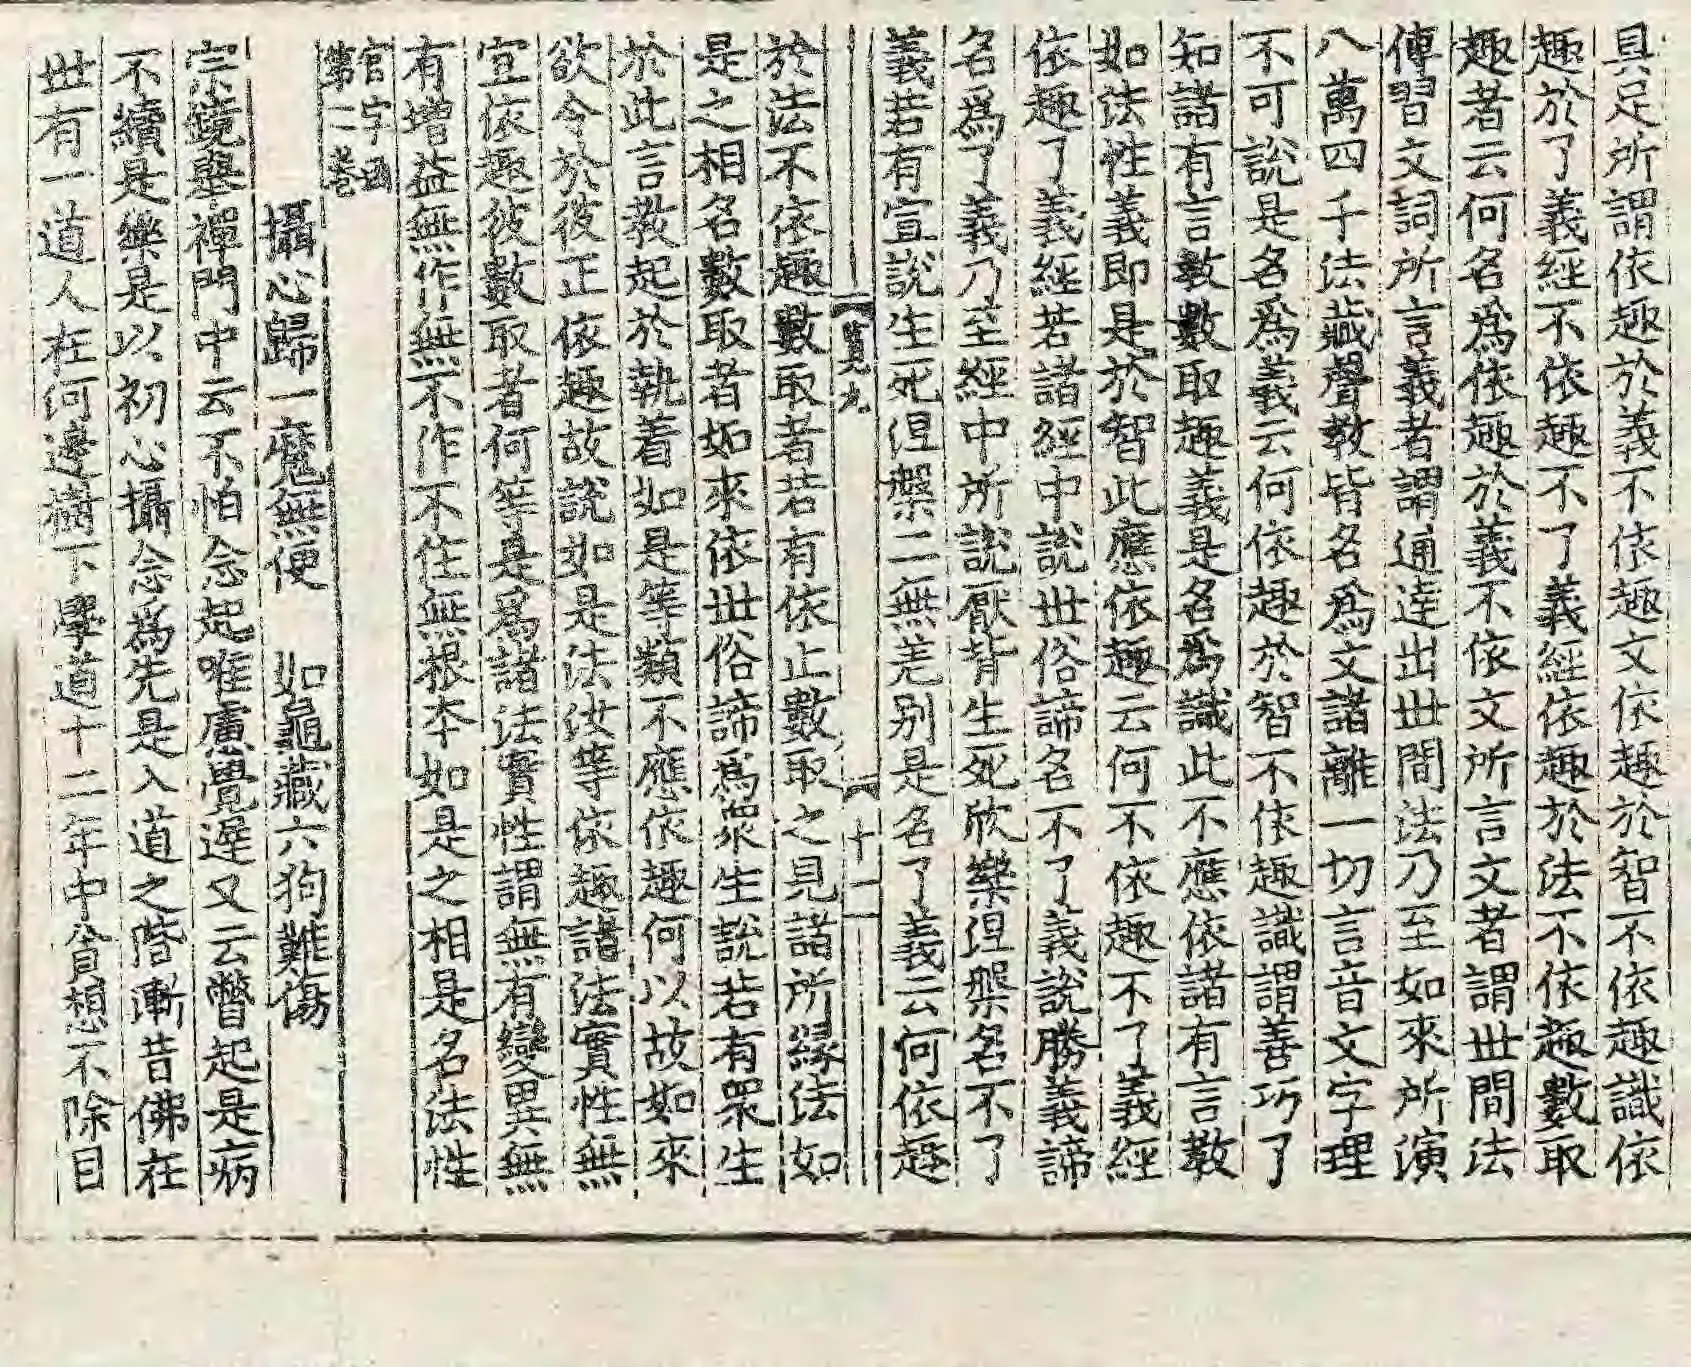 具足所謂依趣於義不依趣文依趣於智不依趣識依
趣於了義經不依趣不了義經依趣於法不依趣數取
趣者云何名爲依趣於義不依文所言文者謂世間法
傳習文詞所言義者謂通達出世間法乃至如來所演
八萬四千法藏聲教皆名爲文諸離一切言音文字理
不可說是名爲義云何依趣於智不依趣識謂善巧了
知諸有言教數取趣義是名爲識此不應依諸有言教
如法性義即是於智此應依趣云何不依趣不了義經
依趣了義經若諸經中說世俗諦名不了義說勝義諦
名爲了義乃至經中所說厭背生死欣樂涅槃名不了
義若有宣說生死涅槃二無差別是名了義云何依趣
十一
於法不依趣數取者若有依止數取之見諸所緣法如
是之相名數取者如來依世俗諦爲衆生說若有眾生
於此言教起於執着如是等類不應依趣何以故如來
欲令於彼正依趣故說如是法汝等依趣諸法實性無
宜依趣彼數取者何等是爲諸法實性謂無有變異無
有增益無作無不作不住無根本如是之相是名法性
官字函
第二卷
攝心歸一魔無便 如龜藏六狗難傷
宗鏡舉禪門中云不怕念起唯慮覺遲又云瞥起是病
不續是藥是以初心攝念爲先是入道之階漸昔佛在
世有一道人在河邊樹下學道十二年中貪想不除目